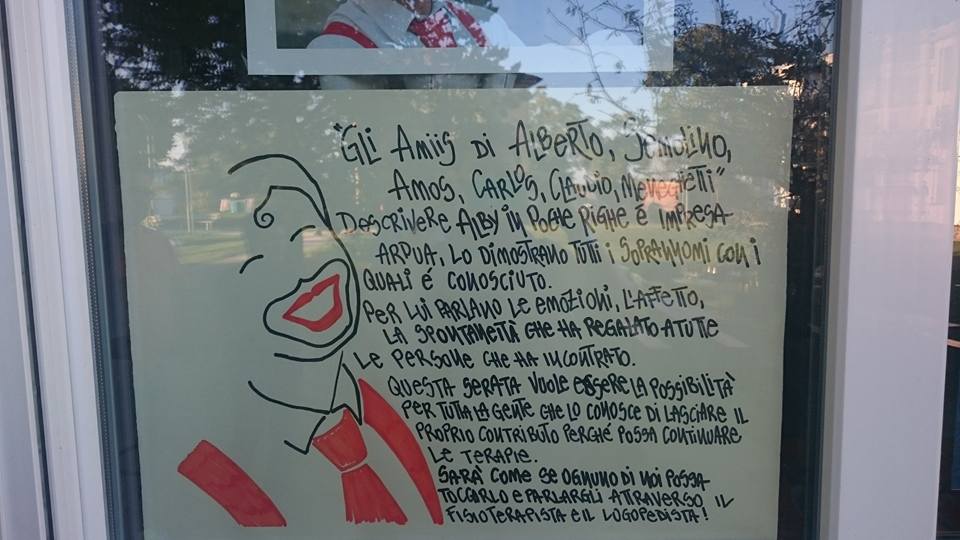 "Gli Amiis di Alberto, Semolino,
Amos, Carlos, Claudio, Meneghetti"
Descrivere Alby in poche righe é impresa
ardua, lo dimostrano tutti i soprannomi con i
quali é conosciuto.
Per lui parlano le emozioni, l'affetto,
la spontaneità che ha regalato a tutte
le persone che ha incontrato.
Questa serata vuole essere la possibilità
per tutta la gente che lo conosce di lasciare il
proprio contributo perché possa continuare
le terapie.
Sarà come se ognuno di noi possa
toccarlo e parlargli attraverso il
fisioterapista e il logopedista!